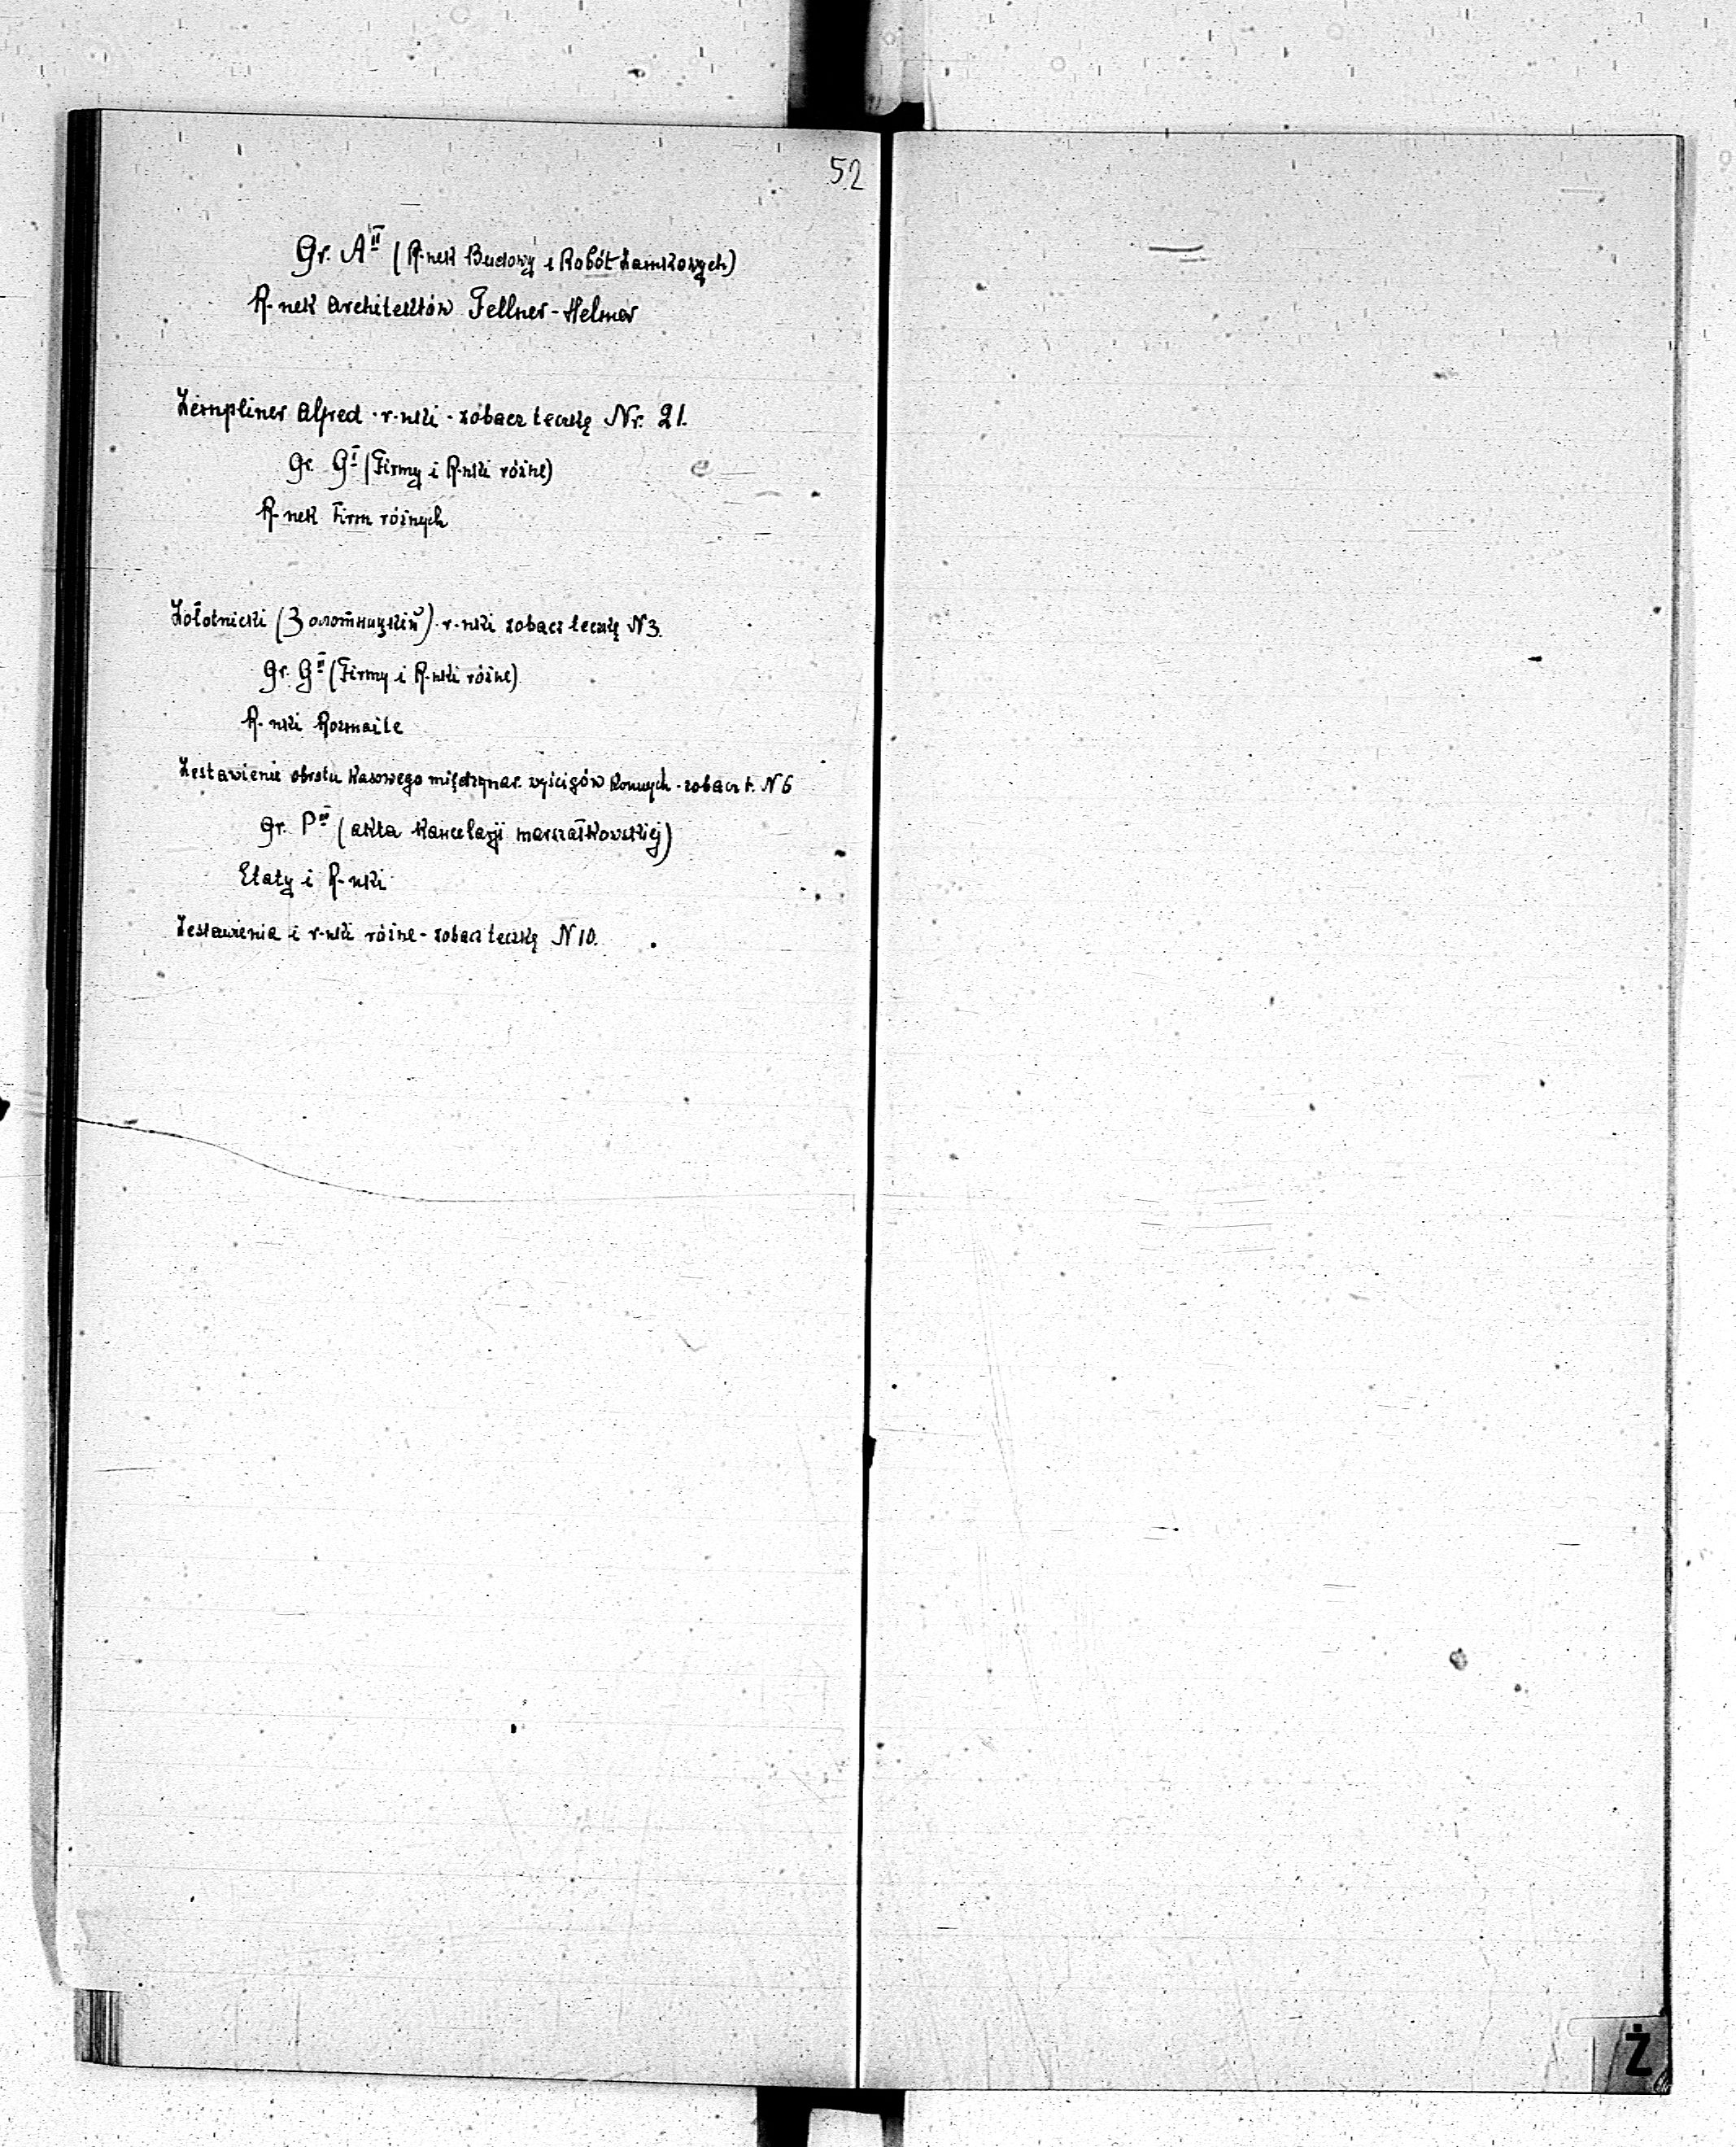 52
Gr. A II (R-nek Budowy i Robót Zamkowych)
R-nek architektów Fellner-Helmer
Zempliner Alfred - r-nki - zobacz teczkę Nr. 21.
Gr. G I (Firmy i R-nki różne)
R-nek Firm różnych
Zołotnicki (Золотницкій) - r-nki zobacz teczkę N 3.
Gr. G II (Firmy i R-nki różne)
R-nki Rozmaite
Zestawienie obrotu kasowego międzynar. wyścigów konnych - zobacz t. N 6
Gr. P III (akta kancelarji marszałkowskiej)
Etaty i R-nki
Zestawienia i r-nki różne - zobacz teczkę N 10.
Ż